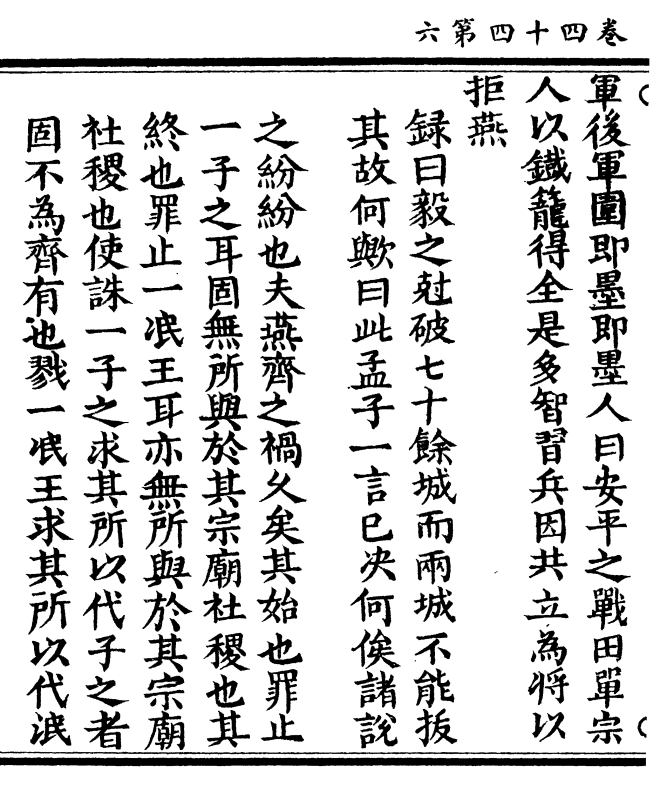 卷四十四第六
軍後軍圍即墨即墨人曰安平之戰田單宗
人以鐵籠得全是多智習兵因共立為將以
拒燕
録曰毅之尅破七十餘城而兩城不能拔
其故何歟曰此孟子一言已决何俟諸說
之紛紛也夫燕齊之禍乆矣其始也罪止
一子之耳固無所與於其宗廟社稷也其
終也罪止一泯王耳亦無所與於其宗廟
社稷也使誅一子之求其所以代子之者
固不為齊有也戮一泯王求其所以代泯